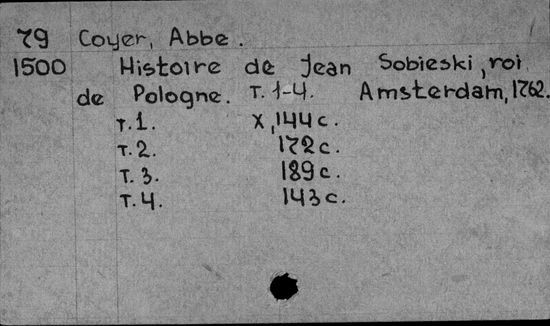 79 Coyer, Abbe.
1500 Histoire de Jean Sobieski, roi
de Pologne. T. 1-4. Amsterdam, 1762.
T. 1. X, 144 c.
T. 2. 172 c.
T. 3. 189 c.
T. 4. 143 c.